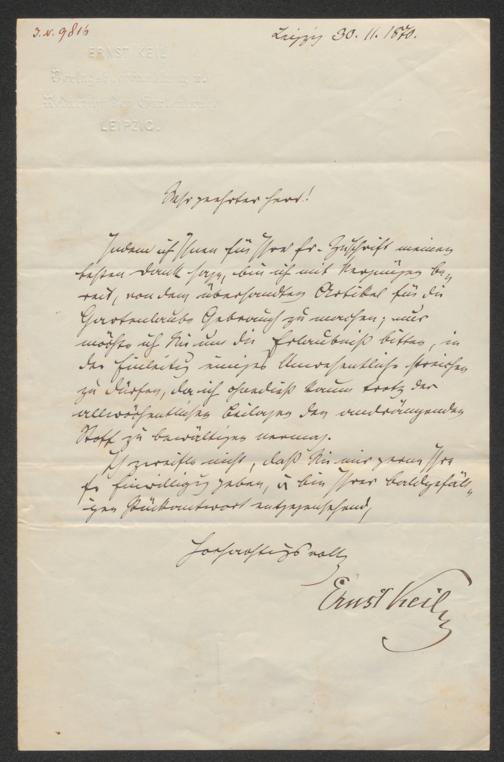 J. N. 9816
Leipzig 30. 11. 1870.
ERNST KEIL
Verlagsbuchhandlung und
Redaktion der Gartenlaube
LEIPZIG.
Sehr geehrter Herr!
Indem ich Ihnen für Ihre fr. Zuschrift meinen
besten Dank sage, bin ich mit Vergnügen be-
reit, von dem übersandten Artikel für die
Gartenlaube Gebrauch zu machen; nur
möchte ich Sie um die Erlaubniß bitten, in
der Einleitung einiges Unwesentliche streichen
zu dürfen, da ich ohnedieß kaum trotz der
allwöchentlichen Beilagen den andrängenden
Stoff zu bewältigen vermag.
Ich zweifle nicht, daß Sie mir gerne Ihre
Einwilligung geben, u bin Ihrer baldgefäl-
ligen Rückantwort entgegensehend,
hochachtungsvoll
Ernst Keil